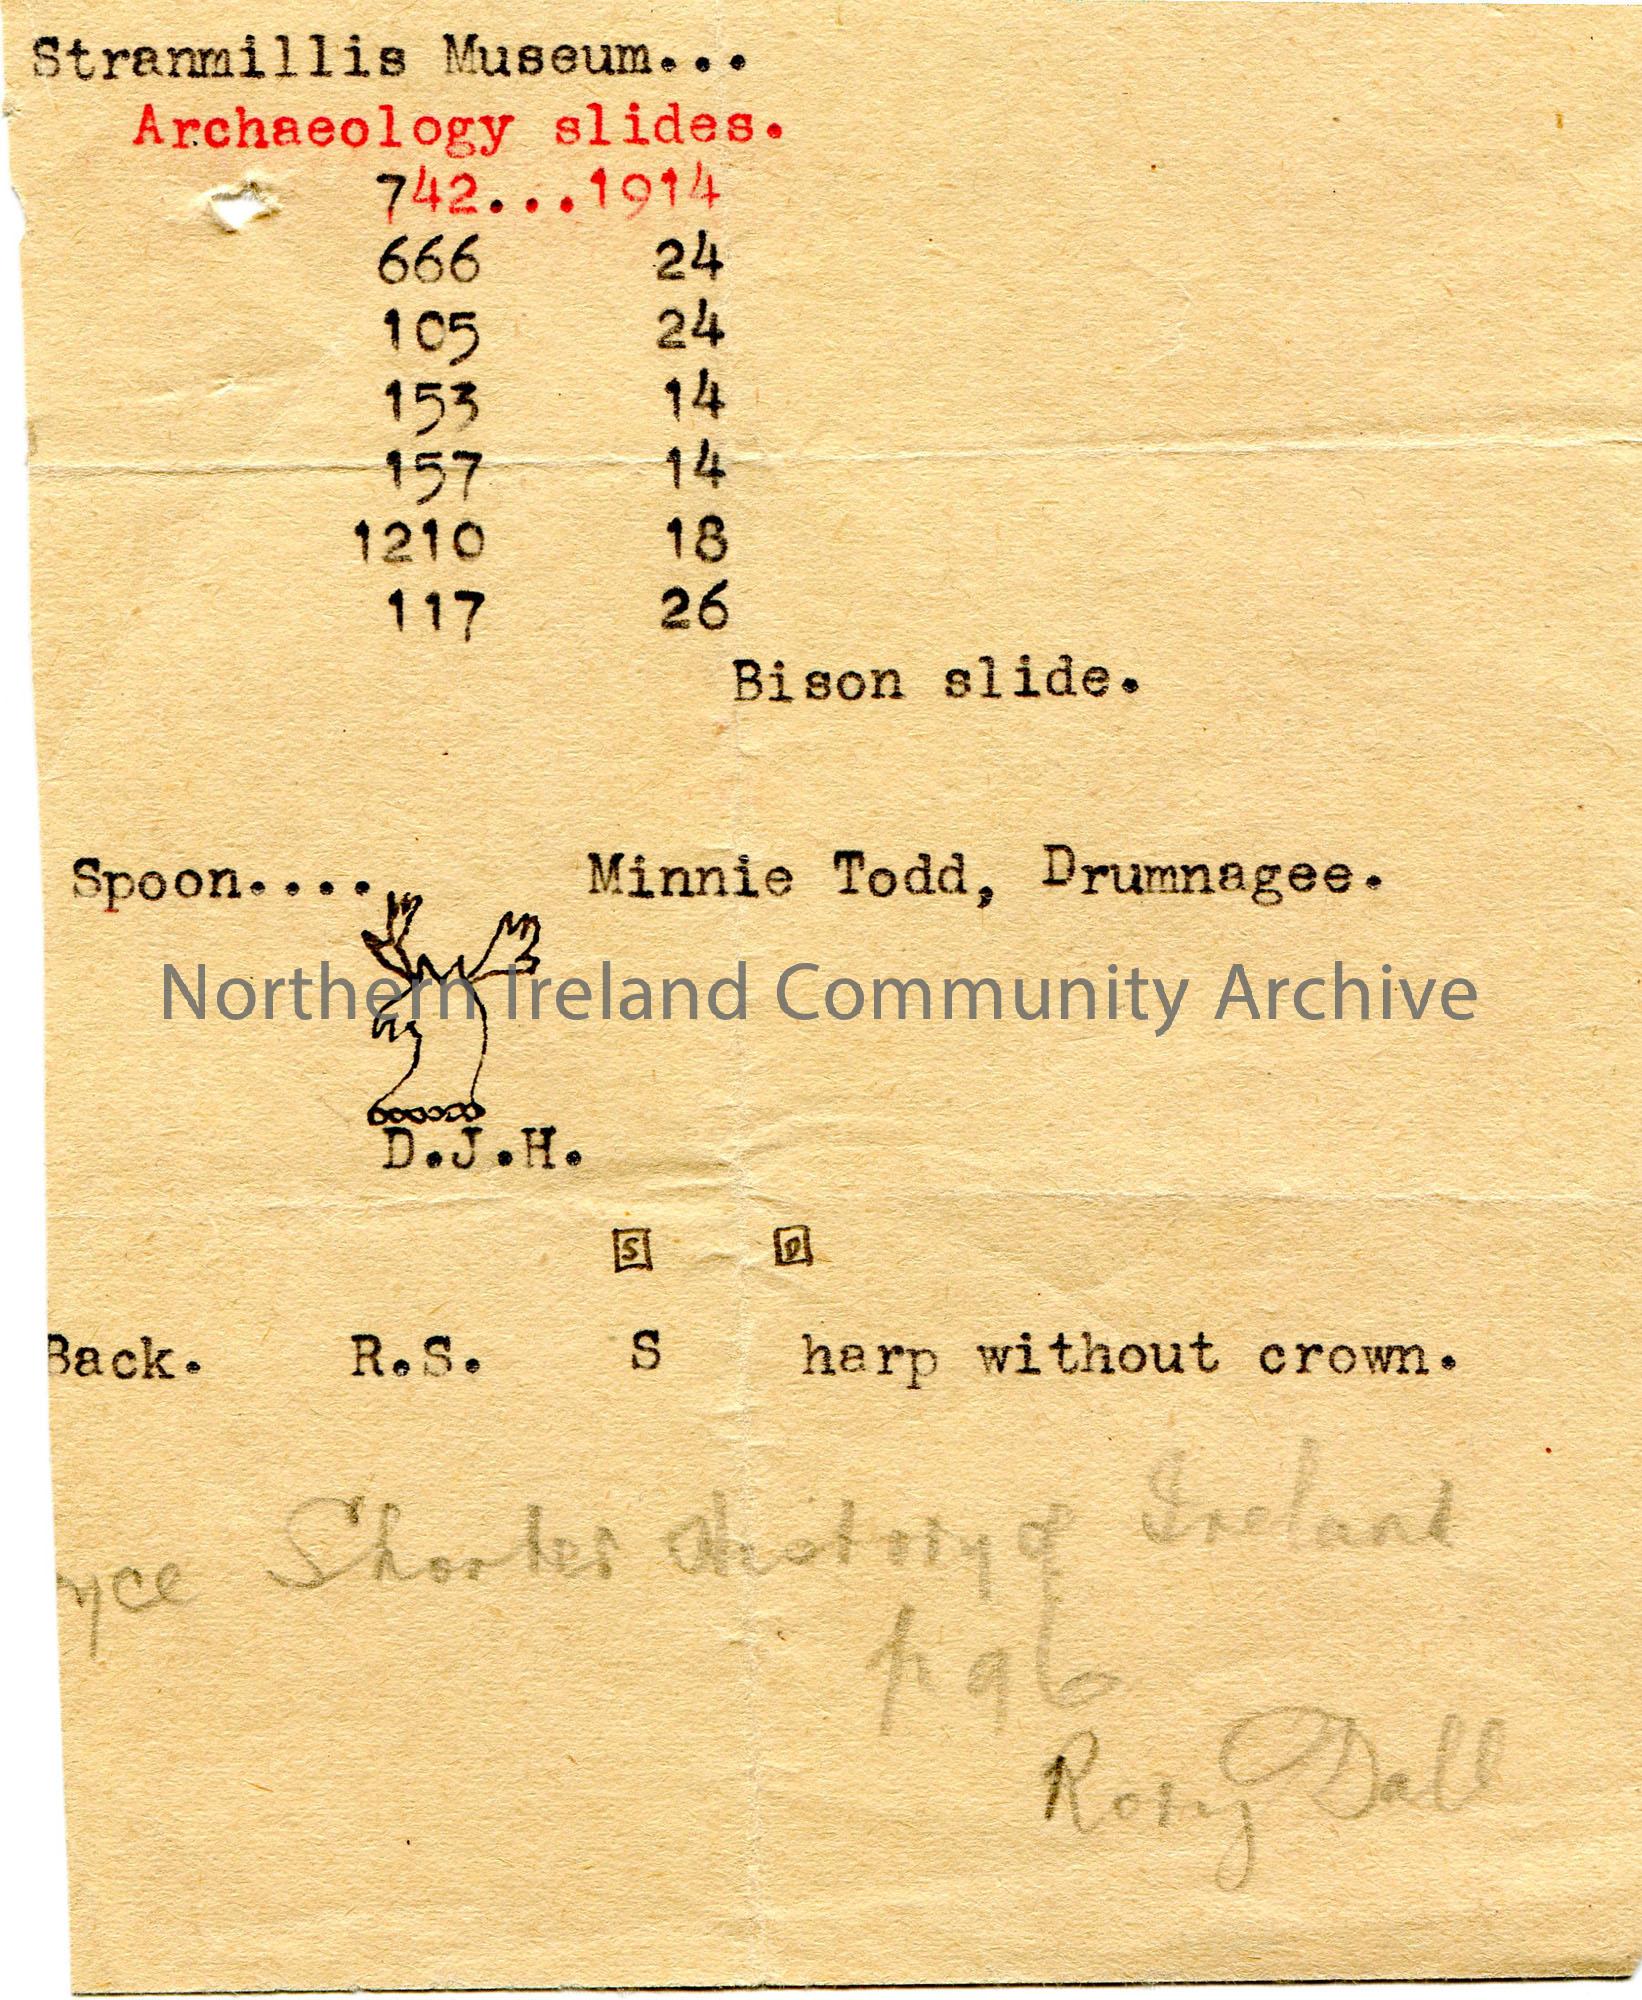 Stranmillis Museum...
Archaeology slides.
742...1914
666 24
105 24
153 14
157 14
1210 18
117 26
Bison slide.
Spoon.... Minnie Todd, Drumnagee.
Northern Ireland Community Archive
D.J.H.
S D
Back. R.S. S harp without crown.
yce Shorter History of Ireland
p 96
Rory Dall